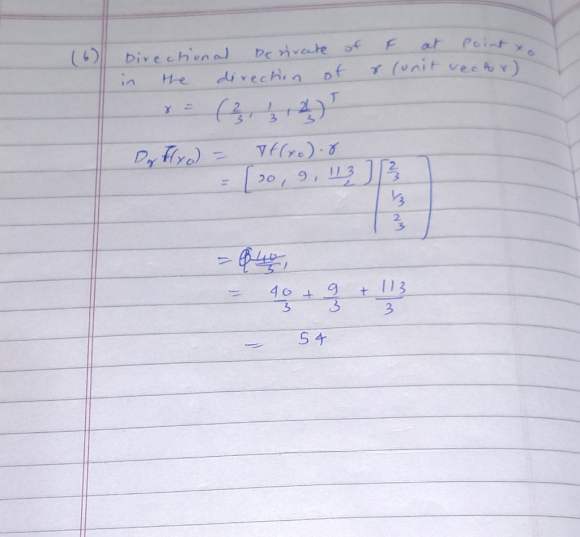 (6) Directional Derivate of F at Point x₀
in the direction of r (unit vector)
r = (2/3, 1/3, 2/3)ᵀ
Dᵣf(x₀) = ∇f(x₀)·r
= [20, 9, 113/2] [2/3 1/3 2/3]
= 40/3,
= 40/3 + 9/3 + 113/3
= 54